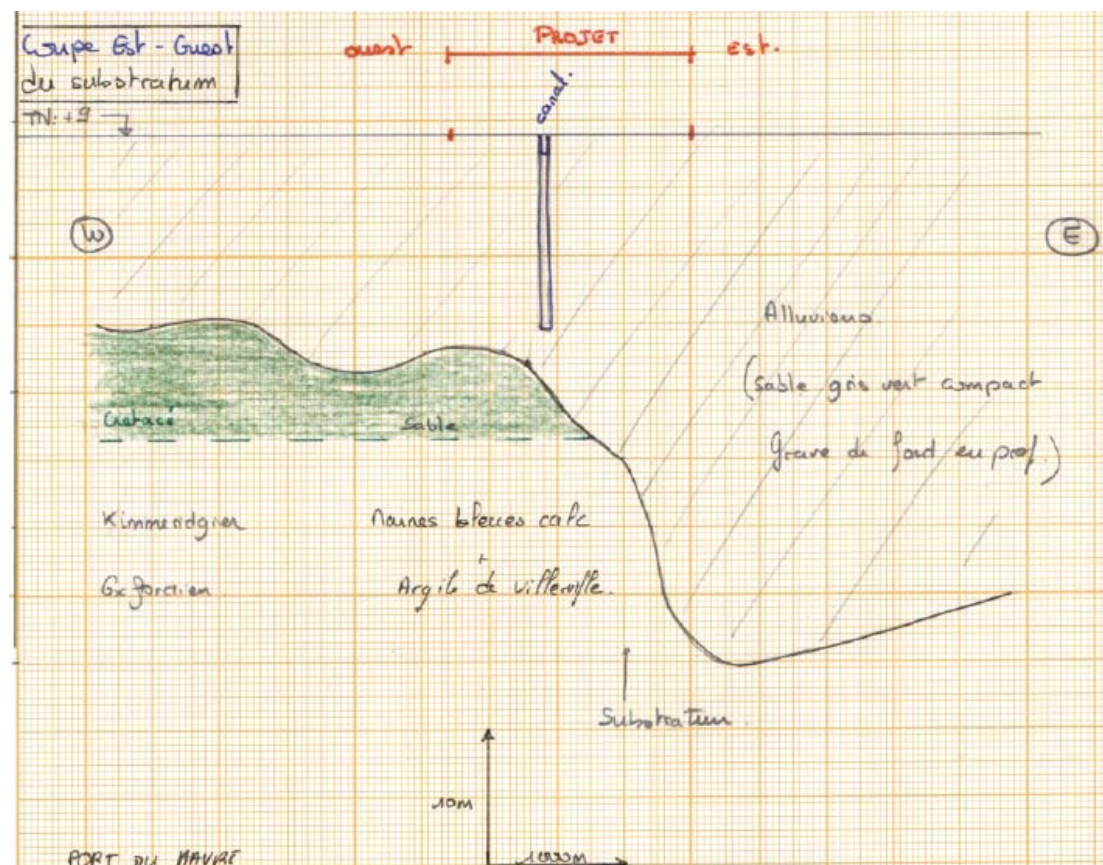 Coupe Est - Ouest
du substratum
TN: +9
ouest PROJET Est.
canal.
W
E
Alluvions
(Sable gris vert compact
Grave de fond en prof.)
Crétacé Sable
Kimmeridgien Marnes bleues calc
+
Oxfordien Argile de Villerville.
Substratum
10m
1000m
PORT DU HAVRE